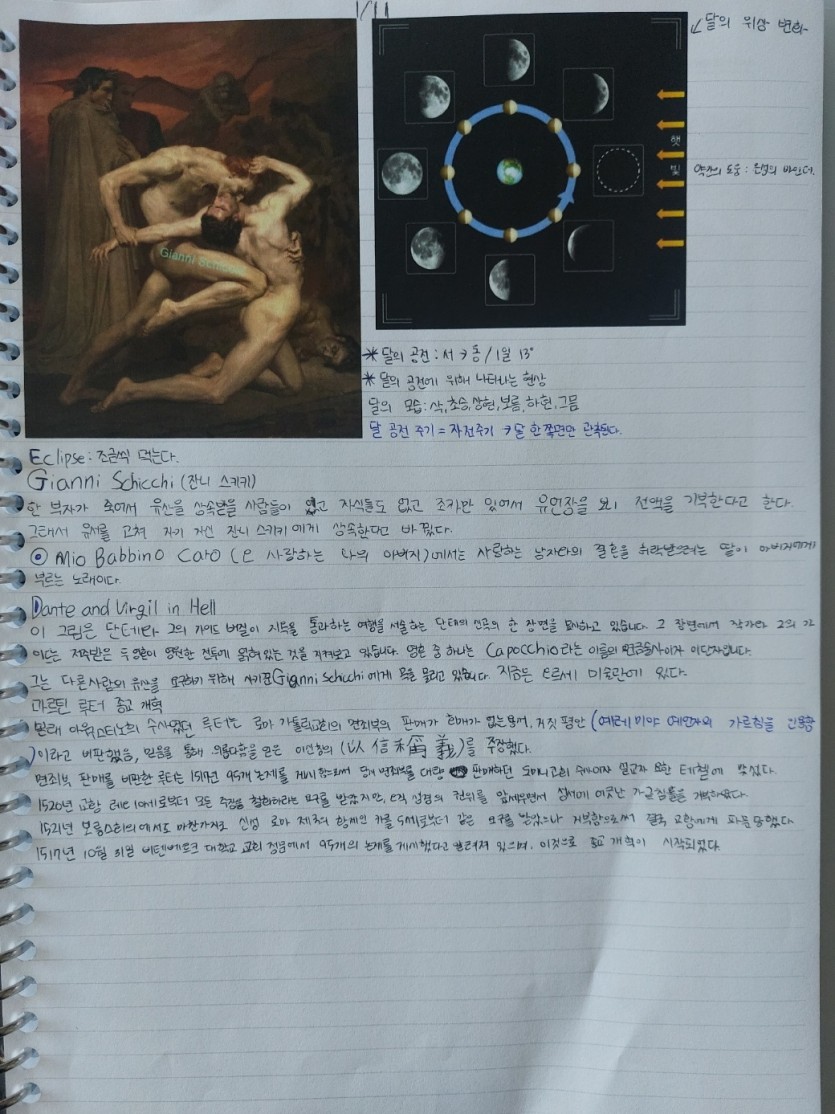 1/11
Gianni Schicchi
햇빛
↙달의 위상 변화
약간의 도움: 은섭의 바인더.
* 달의 공전: 서→동 / 1일 13°
* 달의 공전에 위해 나타나는 현상
달의 모습: 삭, 초승, 상현, 보름, 하현, 그믐
달 공전 주기 = 자전주기 → 달 한쪽면만 관측된다.
Eclipse: 조금씩 먹는다.
Gianni Schicchi (잔니 스키키)
한 부자가 죽어서 유산을 상속받을 사람들이 없고 자식들도 없고 조카만 있어서 유언장을 보니 전액을 기부한다고 한다.
그래서 유서를 고쳐 자기 거신 잔니 스키키에게 상속한다고 바꿨다.
O Mio Babbino Caro (오 사랑하는 나의 아버지)에서는 사랑하는 남자와의 결혼을 허락받으려는 딸이 아버지에게
부르는 노래이다.
Dante and Virgil in Hell
이 그림은 단테와 그의 가이드 버질이 지옥을 통과하는 여행을 서술하는 단테의 신곡의 한 장면을 묘사하고 있습니다. 그 장면에서 작가와 그의 가
이드는 저주받은 두 영혼이 영원한 전투에 얽혀있는 것을 지켜보고 있습니다. 영혼 중 하나는 Capocchio라는 이름의 연금술사이자 이단자입니다.
그는 다른사람의 유산을 요구하기 위해 사기꾼 Gianni Schicchi에게 목을 물리고 있습니다. 지금은 오르세 미술관에 있다.
마르틴 루터 종교 개혁
본래 아우구스티노회 수사였던 루터는 로마 가톨릭교회의 면죄부의 판매가 회개가 없는 용서, 거짓 평안 (예레미야 예언자의 가르침을 인용함
)이라고 비판했음, 믿음을 통해 의롭다함을 얻은 이신칭의 (以信稱義)를 주장했다.
면죄부 판매를 비판한 루터는 1517년 95개 논제를 게시함으로써 당시 면죄부를 대량 판매하던 도미니코회 수사이자 설교자 요한 테첼에 맞섰다.
1520년 교황 레오 10세로부터 모든 주장을 철회하라는 요구를 받았지만, 오직 성경의 권위를 앞세우면서 성서에 어긋난 가르침들을 거부하였다.
1521년 보름스회의에서도 마찬가지로 신성 로마 제국의 황제인 카를 5세로부터 같은 요구를 받았으나 거부함으로써 결국 교황에게 파문당했다
1517년 10월 31일 비텐베르크 대학교 교회 정문에서 95개의 논제를 게시했다고 알려져 있으며, 이것으로 종교 개혁이 시작되었다.